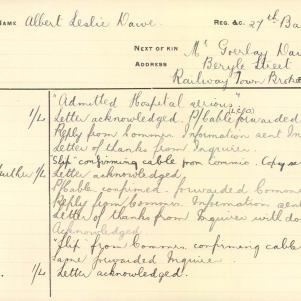 NAME Albert Leslie Dawe. REG. &C. 27th Ba
NEXT OF KIN Mr Goerlay Daw
ADDRESS Beryle Street
Railway Town Broke
"Admitted Hospital serious"
1/L Letter acknowledged. P/Cable forwarded
Reply from Commr. Information sent In
Letter of thanks from Inquirer.
"Slip" confirming cable from Commr. Copy sen
further 1/L Letter acknowledged.
P/Cable confirmed. forwarded Comm
Reply from Commr. Information sent
Letter of thanks from Inquirer will do
Acknowledged.
"Slip" from Commr. confirming cable
Same forwarded Inquirer.
1/L Letter acknowledged.